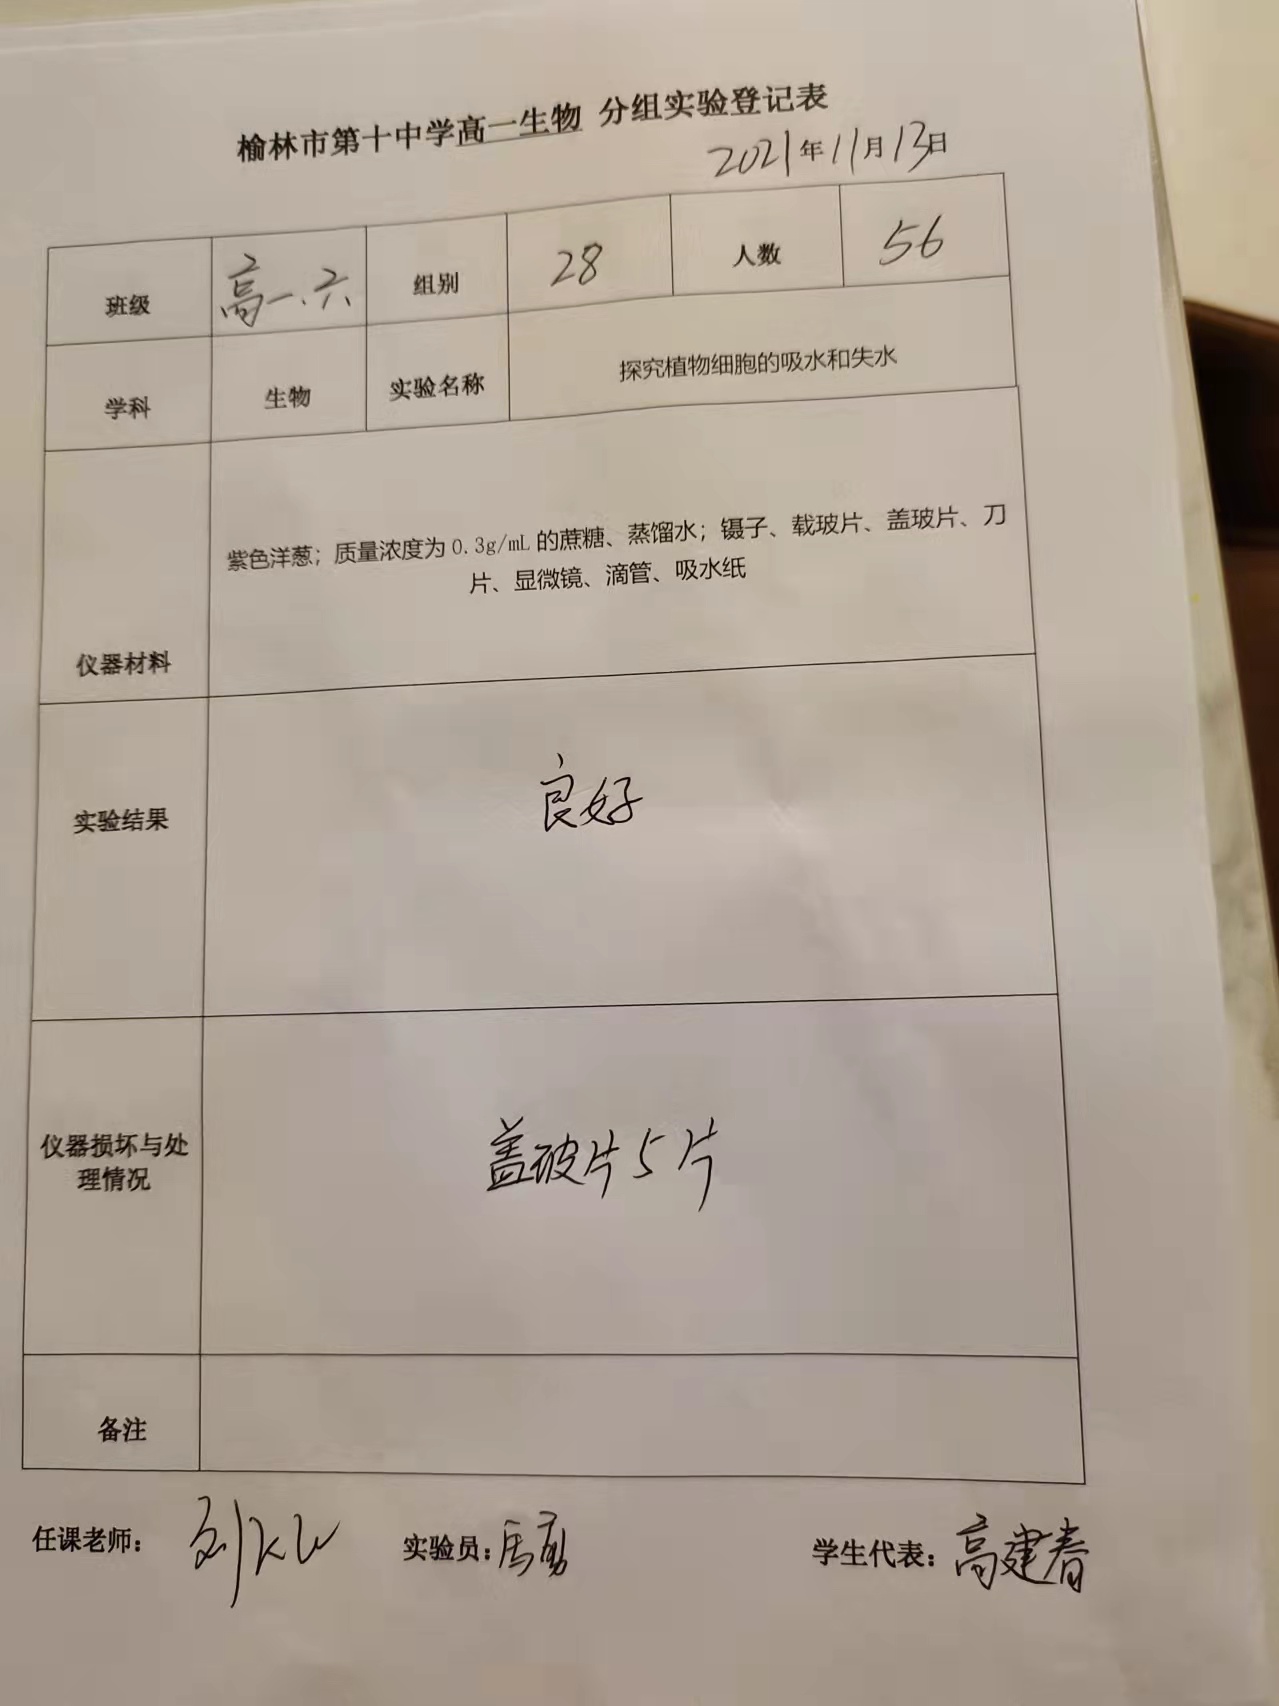 榆林市第十中学高一生物 分组实验登记表
2021年11月13日
班级 高一.六 组别 28 人数 56
学科 生物 实验名称 探究植物细胞的吸水和失水
仪器材料
紫色洋葱；质量浓度为0.3g/mL的蔗糖、蒸馏水；镊子、载玻片、盖玻片、刀
片、显微镜、滴管、吸水纸
实验结果 良好
仪器损坏与处
理情况
盖玻片5片
备注
任课老师： 刘 实验员： 学生代表：高建春